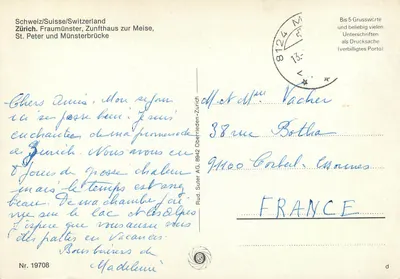 Schweiz/Suisse/Switzerland
Zürich. Fraumünster, Zunfthaus zur Meise,
St. Peter und Münsterbrücke
Chers Amis. Mon séjour
ici se passe bien. Je suis
enchantée de ma promenade
à Zurich. Nous avons eu
8 jours de grosse chaleur
mais le temps est assez
beau. De ma chambre j'ai
vue sur le lac et les Alpes
J'espère que vous aussi vous
êtes partis en vacances
Bons baisers de
Madeleine
Nr. 19708
Rud. Suter AG, 8942 Oberrieden-Zürich
8124 M
13.
Bis 5 Grussworte
und beliebig vielen
Unterschriften
als Drucksache
(verbilligtes Porto)
M. et Mme Vacher
38 rue Botha
91100 Corbeil-Essonnes
FRANCE
d